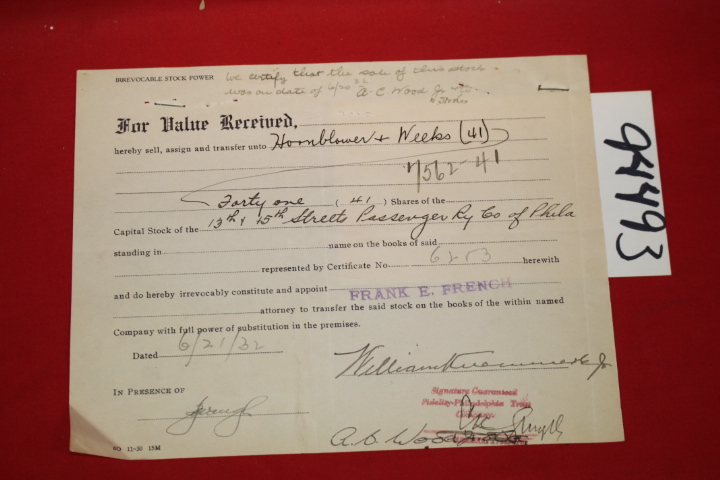 IRREVOCABLE STOCK POWER
We certify that the sale of this stock
was on date of 6/20 32 A. C. Wood Jr
For Value Received,
hereby sell, assign and transfer unto Hornblower & Weeks (41)
7562-41
Forty one ( 41 ) Shares of the
Capital Stock of the 13th & 15th Streets Passenger Ry Co of Phila
standing in name on the books of said
represented by Certificate No. 6253 herewith
and do hereby irrevocably constitute and appoint FRANK E. FRENCH
attorney to transfer the said stock on the books of the within named
Company with full power of substitution in the premises.
Dated 6/21/32
William Jr
IN PRESENCE OF
Signature Guaranteed
Fidelity-Philadelphia Trust
Company
A. C. Wood
6D 11-30 15M
94493